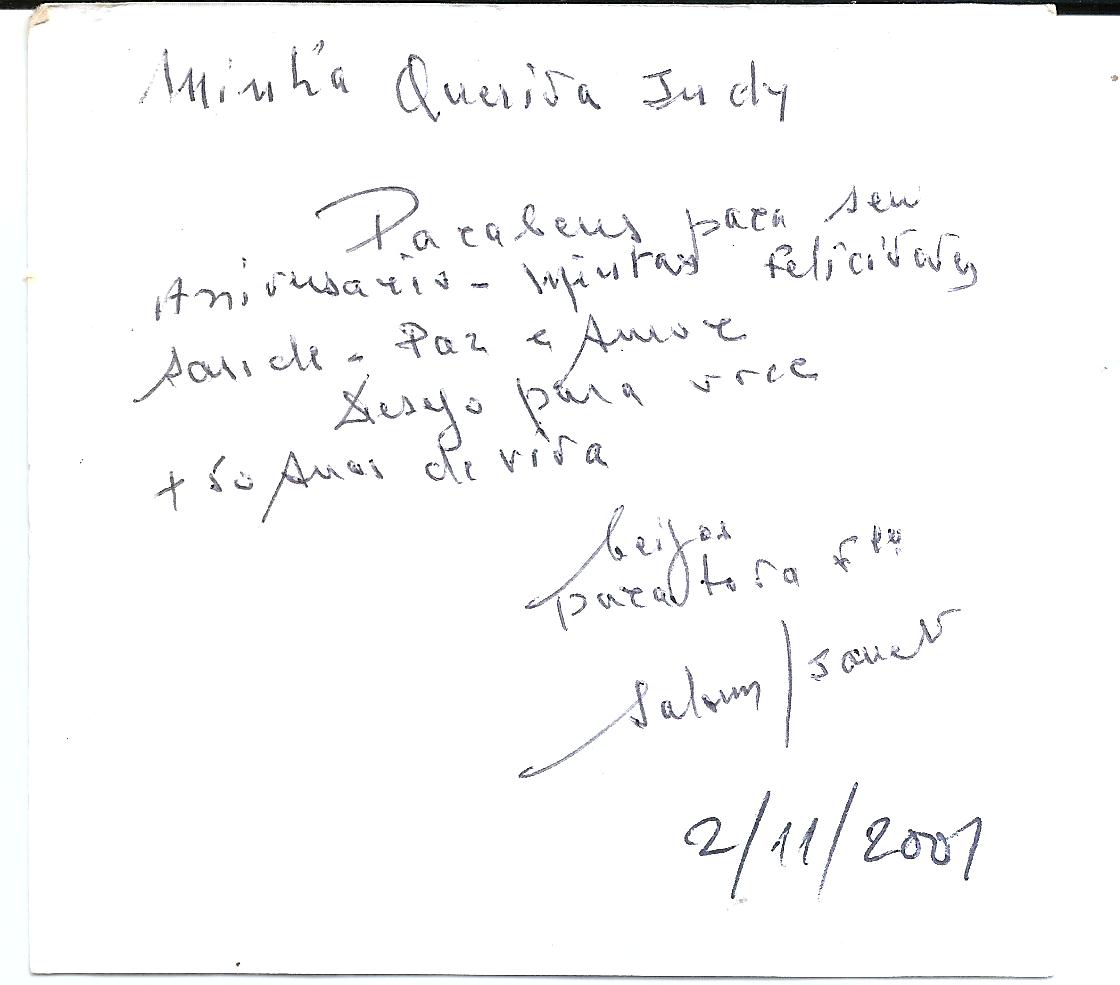 Minha Querida Judy
Parabens para seu
Aniversario - Muitas Felicidades
Saude - Paz e Amor
Desejo para voce
+ 50 Anos de vida
beijos
para toda
Salomon / Janet
2/11/2001